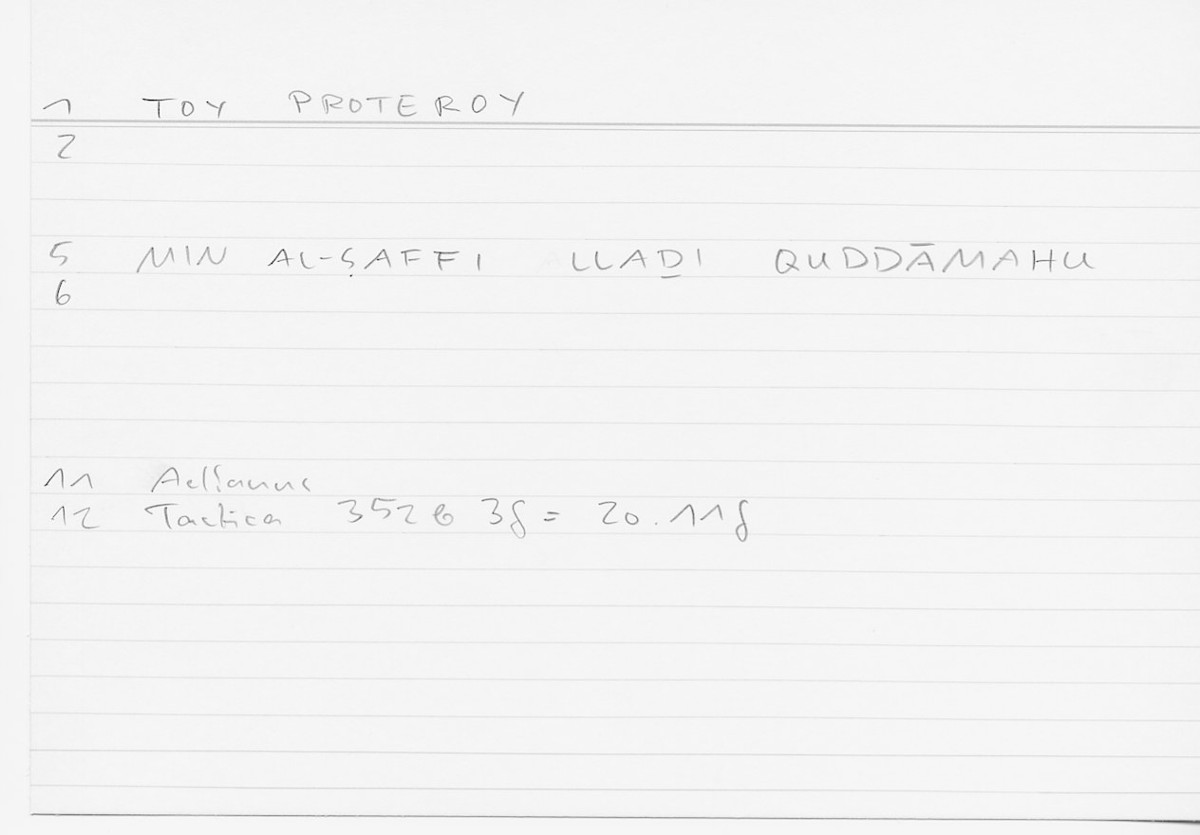 1 TOY PROTEROY
2
5 MIN AL-ṢAFFI LLAḎI QUDDĀMAHU
6
11 Aelianus
12 Tactica 352b 3f = 20.11f